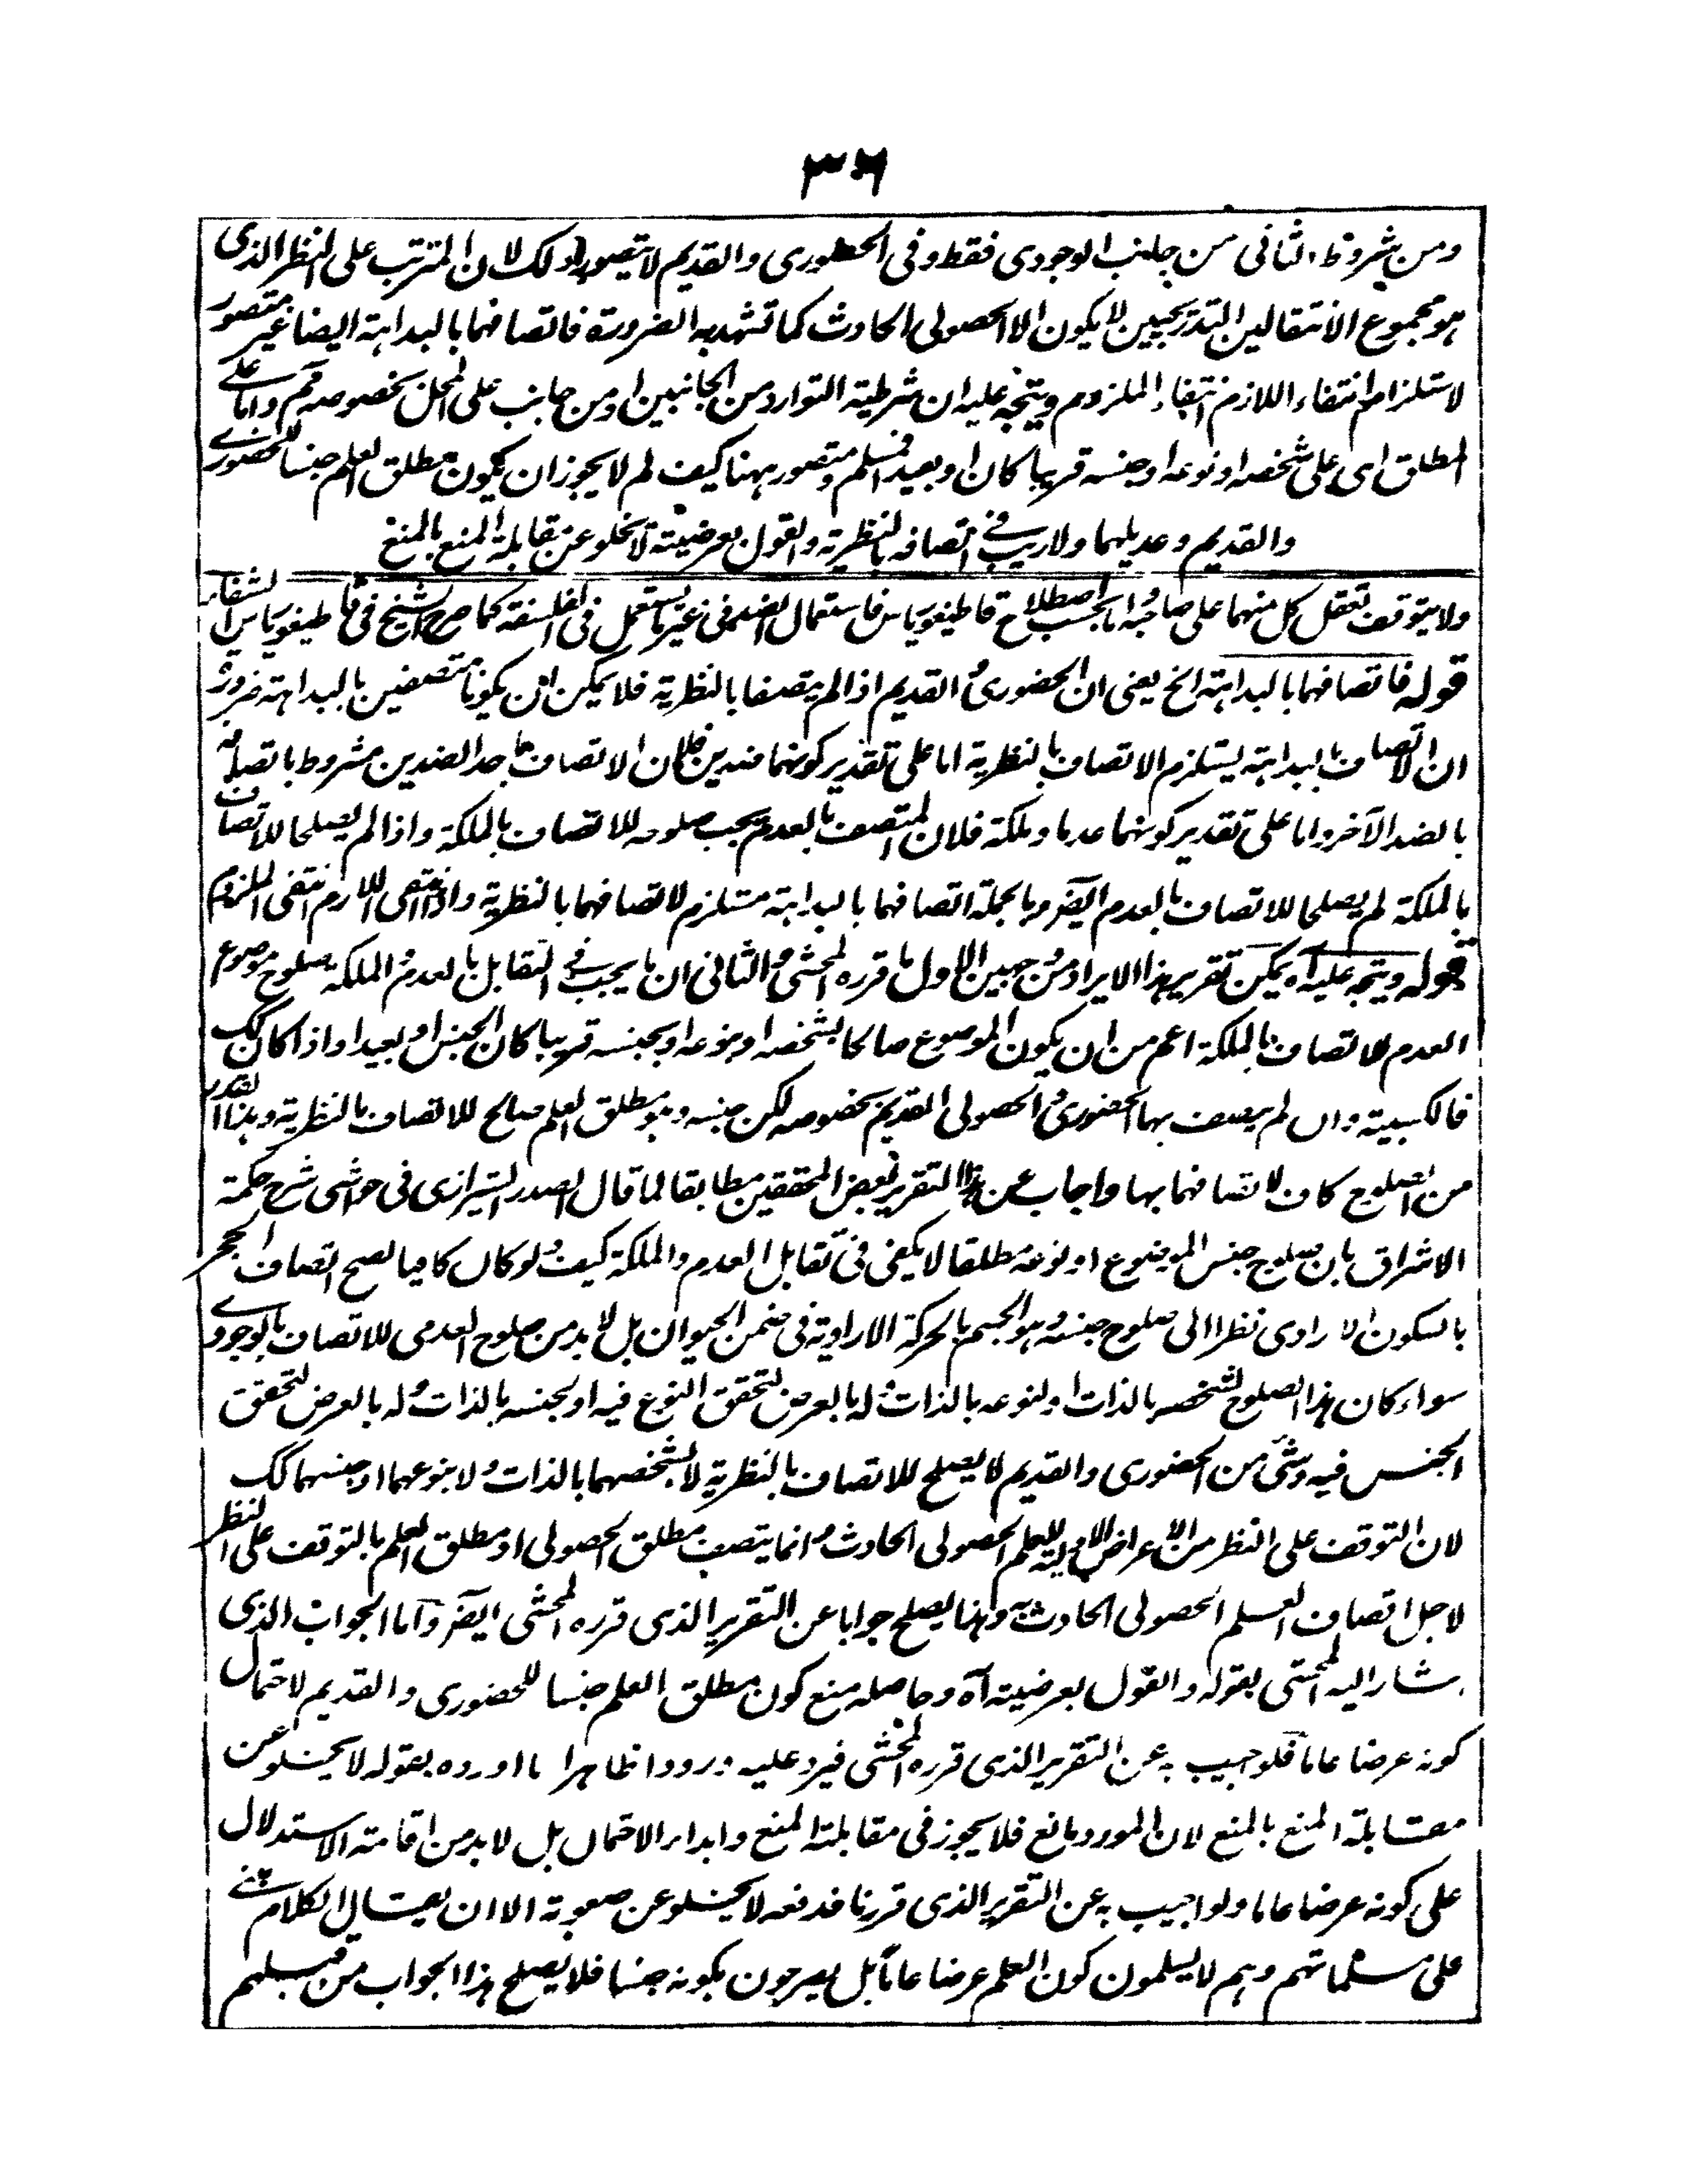 ٣٦
ومن شروط الثانى من جانب الوجودى فقط وفى الحضورى والقديم لا يتصور ذلك لان المترتب على النظر الذى
هو مجموع الانتقالين التدريجيين لا يكون الا الحصولى الحادث كما تشهد به الضرورة فاتصافهما بالبداهة ايضا غير متصور
لاستلزام انتفاء اللازم انتفاء الملزوم ويتجه عليه ان شرطية التوارد من الجانبين او من جانب على المحل بخصوصه مم واما على
المطلق اى على شخصه او نوعه او جنسه قريبا كان او بعيدا فمسلم ومتصور ههنا كيف لم لا يجوز ان يكون مطلق العلم جنسا للحضورى
والقديم وعديلهما ولا ريب فى اتصافه بالنظرية والقول بعرضيته لا يخلو عن مقابلة المنع بالمنع
ولا يتوقف تعقل كل منهما على صاحبه اما بحسب اصطلاح قاطيغورياس فاستعمال الضد فى غير ما يستعمل فى الفلسفة كما صرح الشيخ فى قاطيغورياس الشفاء
قوله فاتصافهما بالبداهة الخ يعنى ان الحضورى والقديم اذا لم يتصفا بالنظرية فلا يمكن ان يكونا متصفين بالبداهة ضرورة
ان الاتصاف بالبداهة يستلزم الاتصاف بالنظرية اما على تقدير كونهما ضدين فلان الاتصاف باحد الضدين مشروط باتصافه
بالضد الآخر واما على تقدير كونهما عدما وملكة فلان المتصف بالعدم يجب صلوحه للاتصاف بالملكة واذا لم يصلحا للاتصاف
بالملكة لم يصلحا للاتصاف بالعدم ايضر وبالجملة اتصافهما بالبداهة مستلزم لاتصافهما بالنظرية واذا انتفى اللازم انتفى الملزوم
قوله ويتجه عليه آه يمكن تقرير هذا الايراد من جهين الاول ما قرره المحشى والثانى ان ما يجب فى التقابل بالعدم والملكة صلوح موضوع
العدم للاتصاف بالملكة اعم من ان يكون الموضوع صالحا بشخصه او بنوعه او بجنسه قريبا كان الجنس او بعيدا واذا كان كك
فالكسبية وان لم يتصف بها الحضورى والحصولى القديم بخصوصه لكن جنسه وهو مطلق العلم صالح للاتصاف بالنظرية وهذا القدر
من الصلوح كاف لاتصافهما بها واجاب عن هذا التقرير بعض المحققين مطابقا لما قال الصدر الشيرازى فى حواشى شرح حكمة
الاشراق بان صلوح جنس الموضوع او نوعه مطلقا لا يكفى فى تقابل العدم والملكة كيف ولو كان كافيا لصح اتصاف الحجر
بالسكون الارادى نظرا الى صلوح جنسه وهو الجسم بالحركة الارادية فى ضمن الحيوان بل لا بد من صلوح العدمى للاتصاف بالوجودى
سواء كان هذا الصلوح لشخصه بالذات او لنوعه بالذات وله بالعرض لتحقق النوع فيه او لجنسه بالذات وله بالعرض لتحقق
الجنس فيه وشئ من الحضورى والقديم لا يصلح للاتصاف بالنظرية لا بشخصهما بالذات ولا بنوعهما او جنسهما كك
لان التوقف على النظر من الاعراض الاولية للعلم الحصولى الحادث وانما يتصف مطلق الحصولى او مطلق العلم بالتوقف على النظر
لاجل اتصاف العلم الحصولى الحادث به وهذا يصلح جوابا عن التقرير الذى قرره المحشى ايضر واما الجواب الذى
اشار اليه المحشى بقوله والقول بعرضيته آه وحاصله منع كون مطلق العلم جنسا للحضورى والقديم لاحتمال
كونه عرضا عاما فلو اجيب به عن التقرير الذى قرره المحشى فيرد عليه ورودا ظاهرا ما اورده بقوله لا يخلو عن
مقابلة المنع بالمنع لان المورد مانع فلا يجوز فى مقابلته المنع وابداء الاحتمال بل لا بد من اقامة الاستدلال
على كونه عرضا عاما ولو اجيب به عن التقرير الذى قررنا فدفعه لا يخلو عن صعوبة الا ان يقال الكلام مبنى
على مسلماتهم وهم لا يسلمون كون العلم عرضا عاما بل يصرحون بكونه جنسا فلا يصلح هذا الجواب من قبلهم